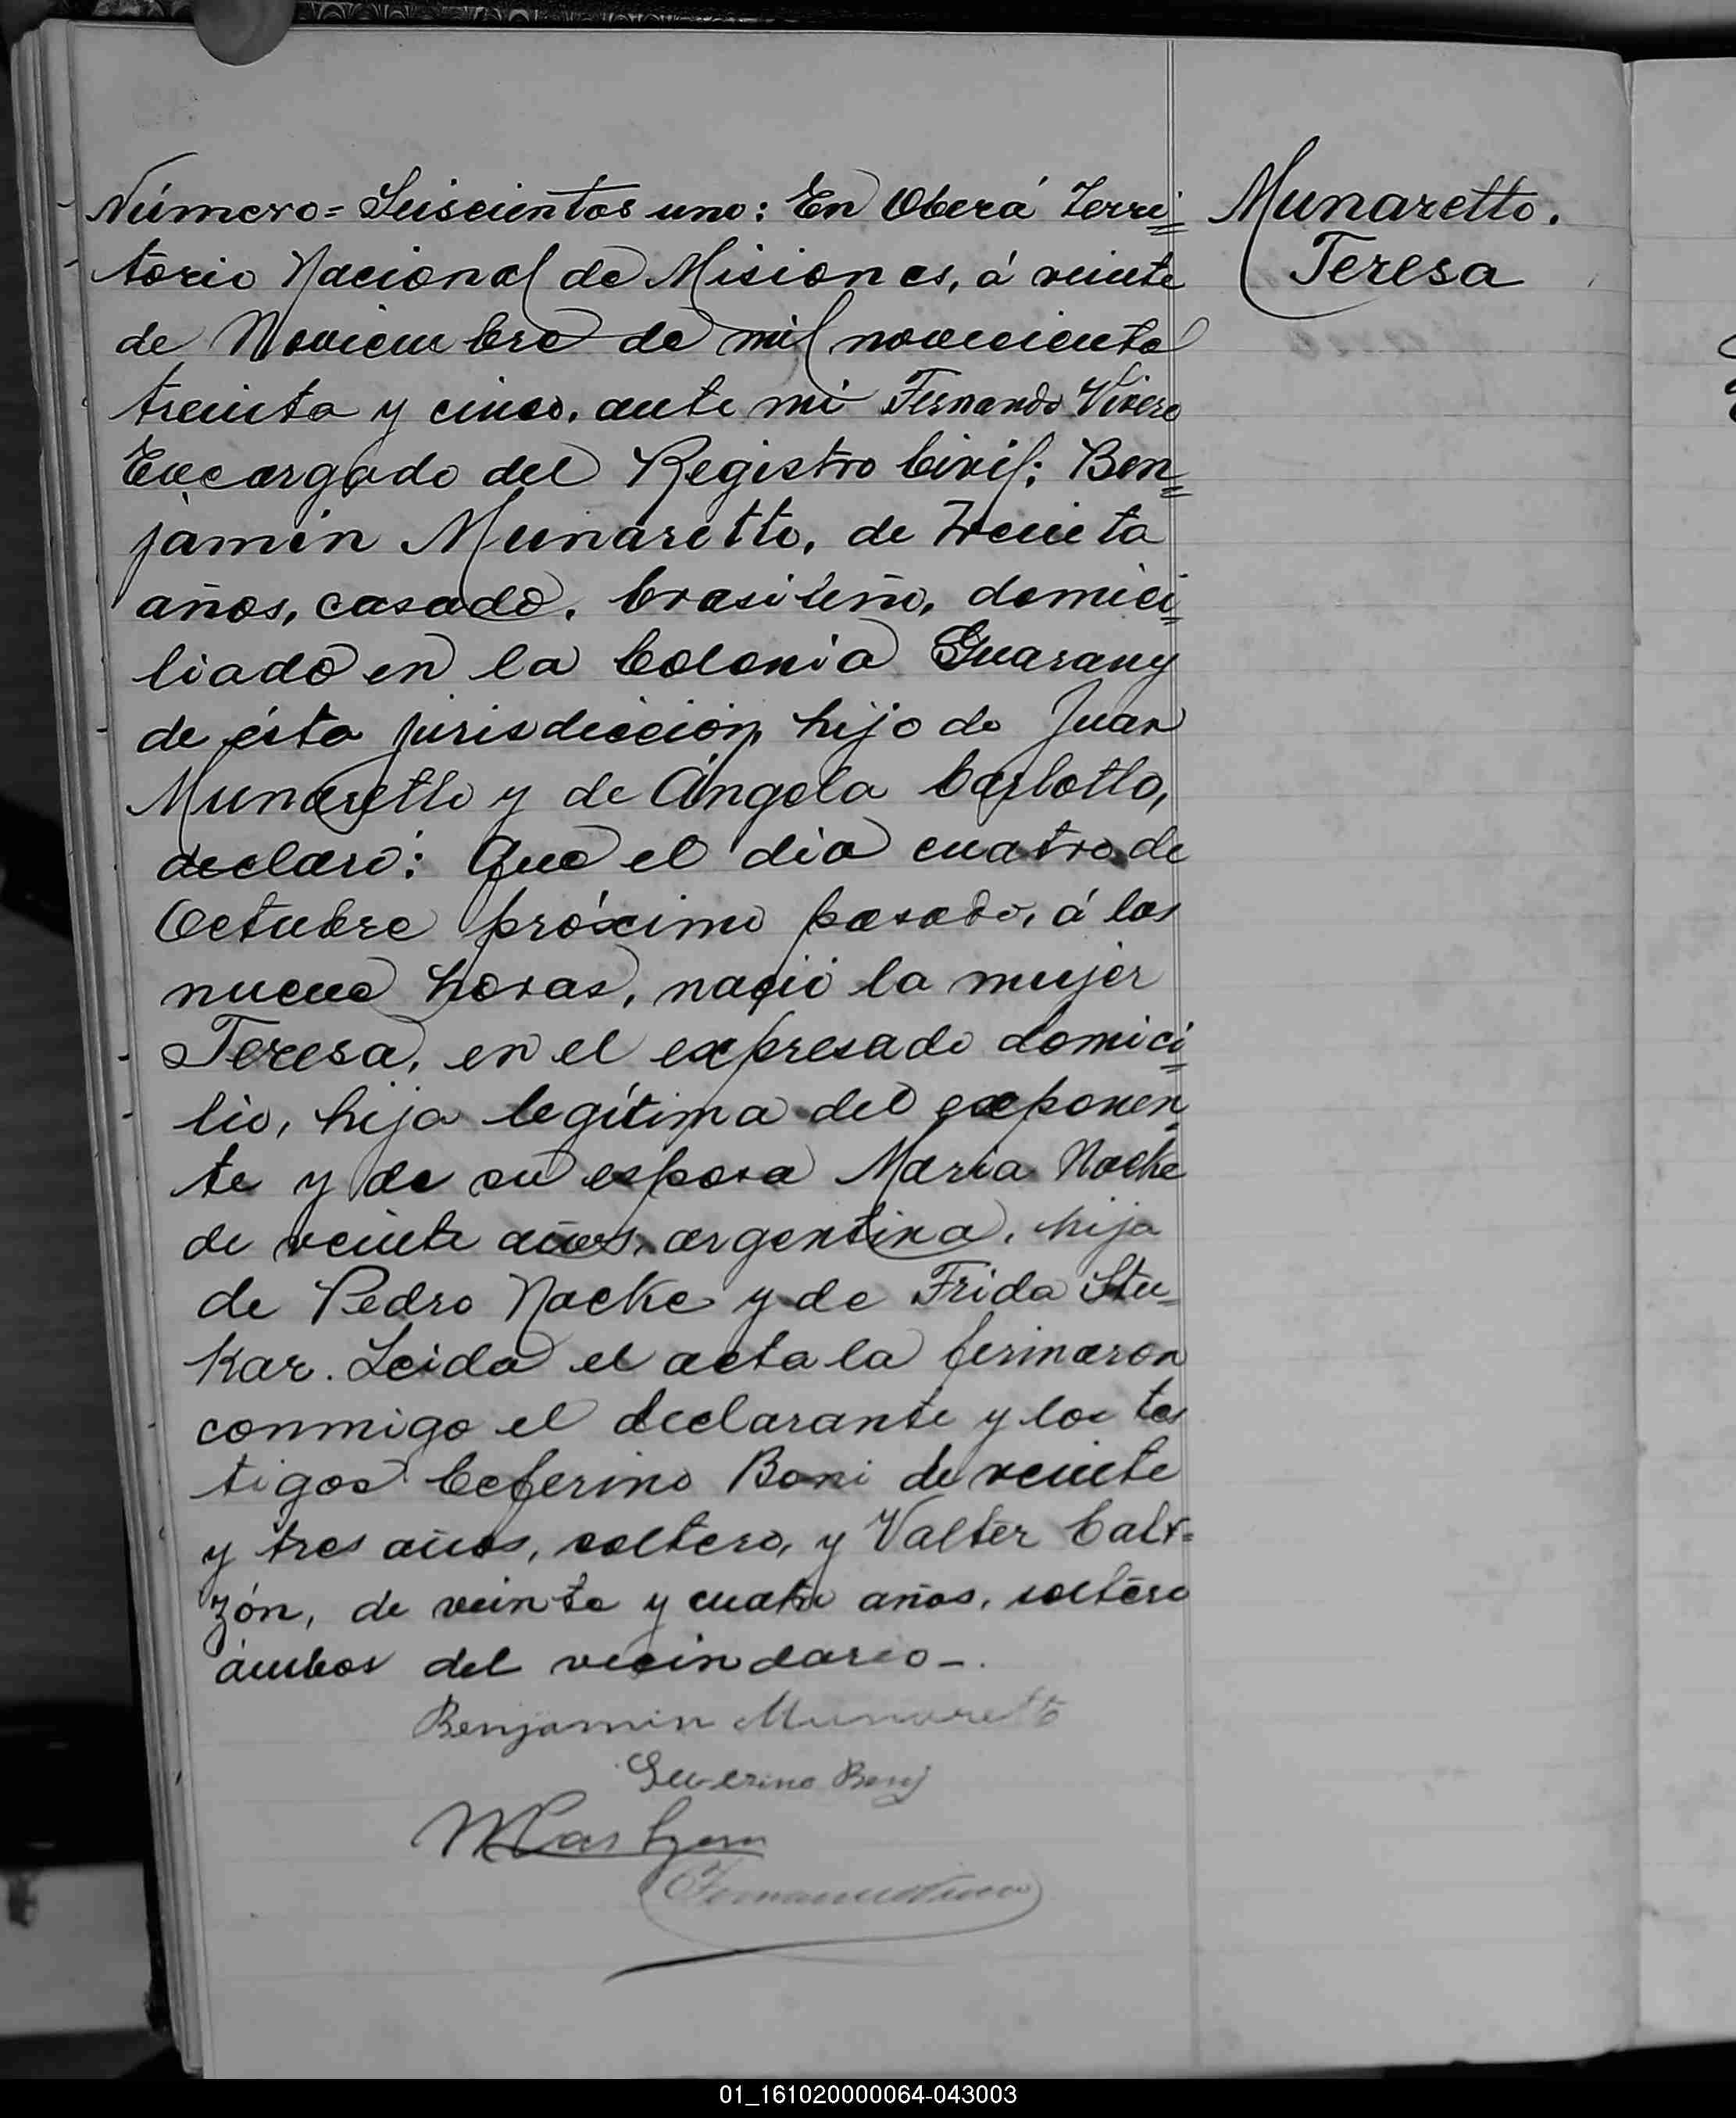 Número = Seiscientos uno: En Oberá Terri=
torio Nacional de Misiones, á veinte
de Noviembre de mil novecientos
treinta y cinco, ante mi Fernando Vivero
Encargado del Registro Civil: Ben=
jamin Munaretto, de treinta
años, casado, brasileño, domici=
liado en la Colonia Guarany
de ésta jurisdicción, hijo de Juan
Munaretto y de Ángela Carlotto,
declaró: Que el dia cuatro de
Octubre próximo pasado, á las
nueve horas, nació la mujer
Teresa, en el expresado domici=
lio, hija legítima del exponen=
te y de su esposa Maria Nacke
de veinte años, argentina, hija
de Pedro Nacke y de Frida Stu=
kar. Leida el acta la firmaron
conmigo el declarante y los tes
tigos Ceferino Boni de veinte
y tres años, soltero, y Valter
zón, de veinte y cuatro años, soltero
ámbos del vecindario-.
Benjamin Munaretto
Munaretto.
Teresa
01_161020000064-043003